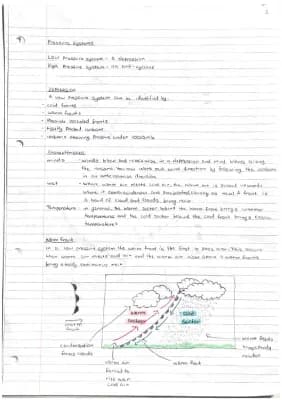 Pressure Systems
Low Pressure System - A depression
High Pressure System - an anti-cyclone
Depression
A low Pressure System can be identified by:
- cold fronts
- warm fronts
- occluded fronts
- tightly packed isobars
- isobars showing Pressure under 1000mb
Characteristics
winds - winds blow anti-clockwise in a depression and wind blows along
the isobars. You can work out wind direction by following the isobars
in an anti-clockwise direction
wet - Where warm air meets cold air, the warm air is forced upwards
where it condenses and
a band of cloud and bring rain.
Temperature - In general, the warm sector behind the warm front brings warmer
temperatures and the cold sector behind the cold front brings
temperatures
Warm Front
In a low pressure system the warm front is the first to pass over. This occurs
when warm air meets cold air and the warm air rises above it warm fronts
bring rain
warm front
warm sector
cold sector
condensation
forms clouds
warm air
forced to
rise over
cold air
warm front